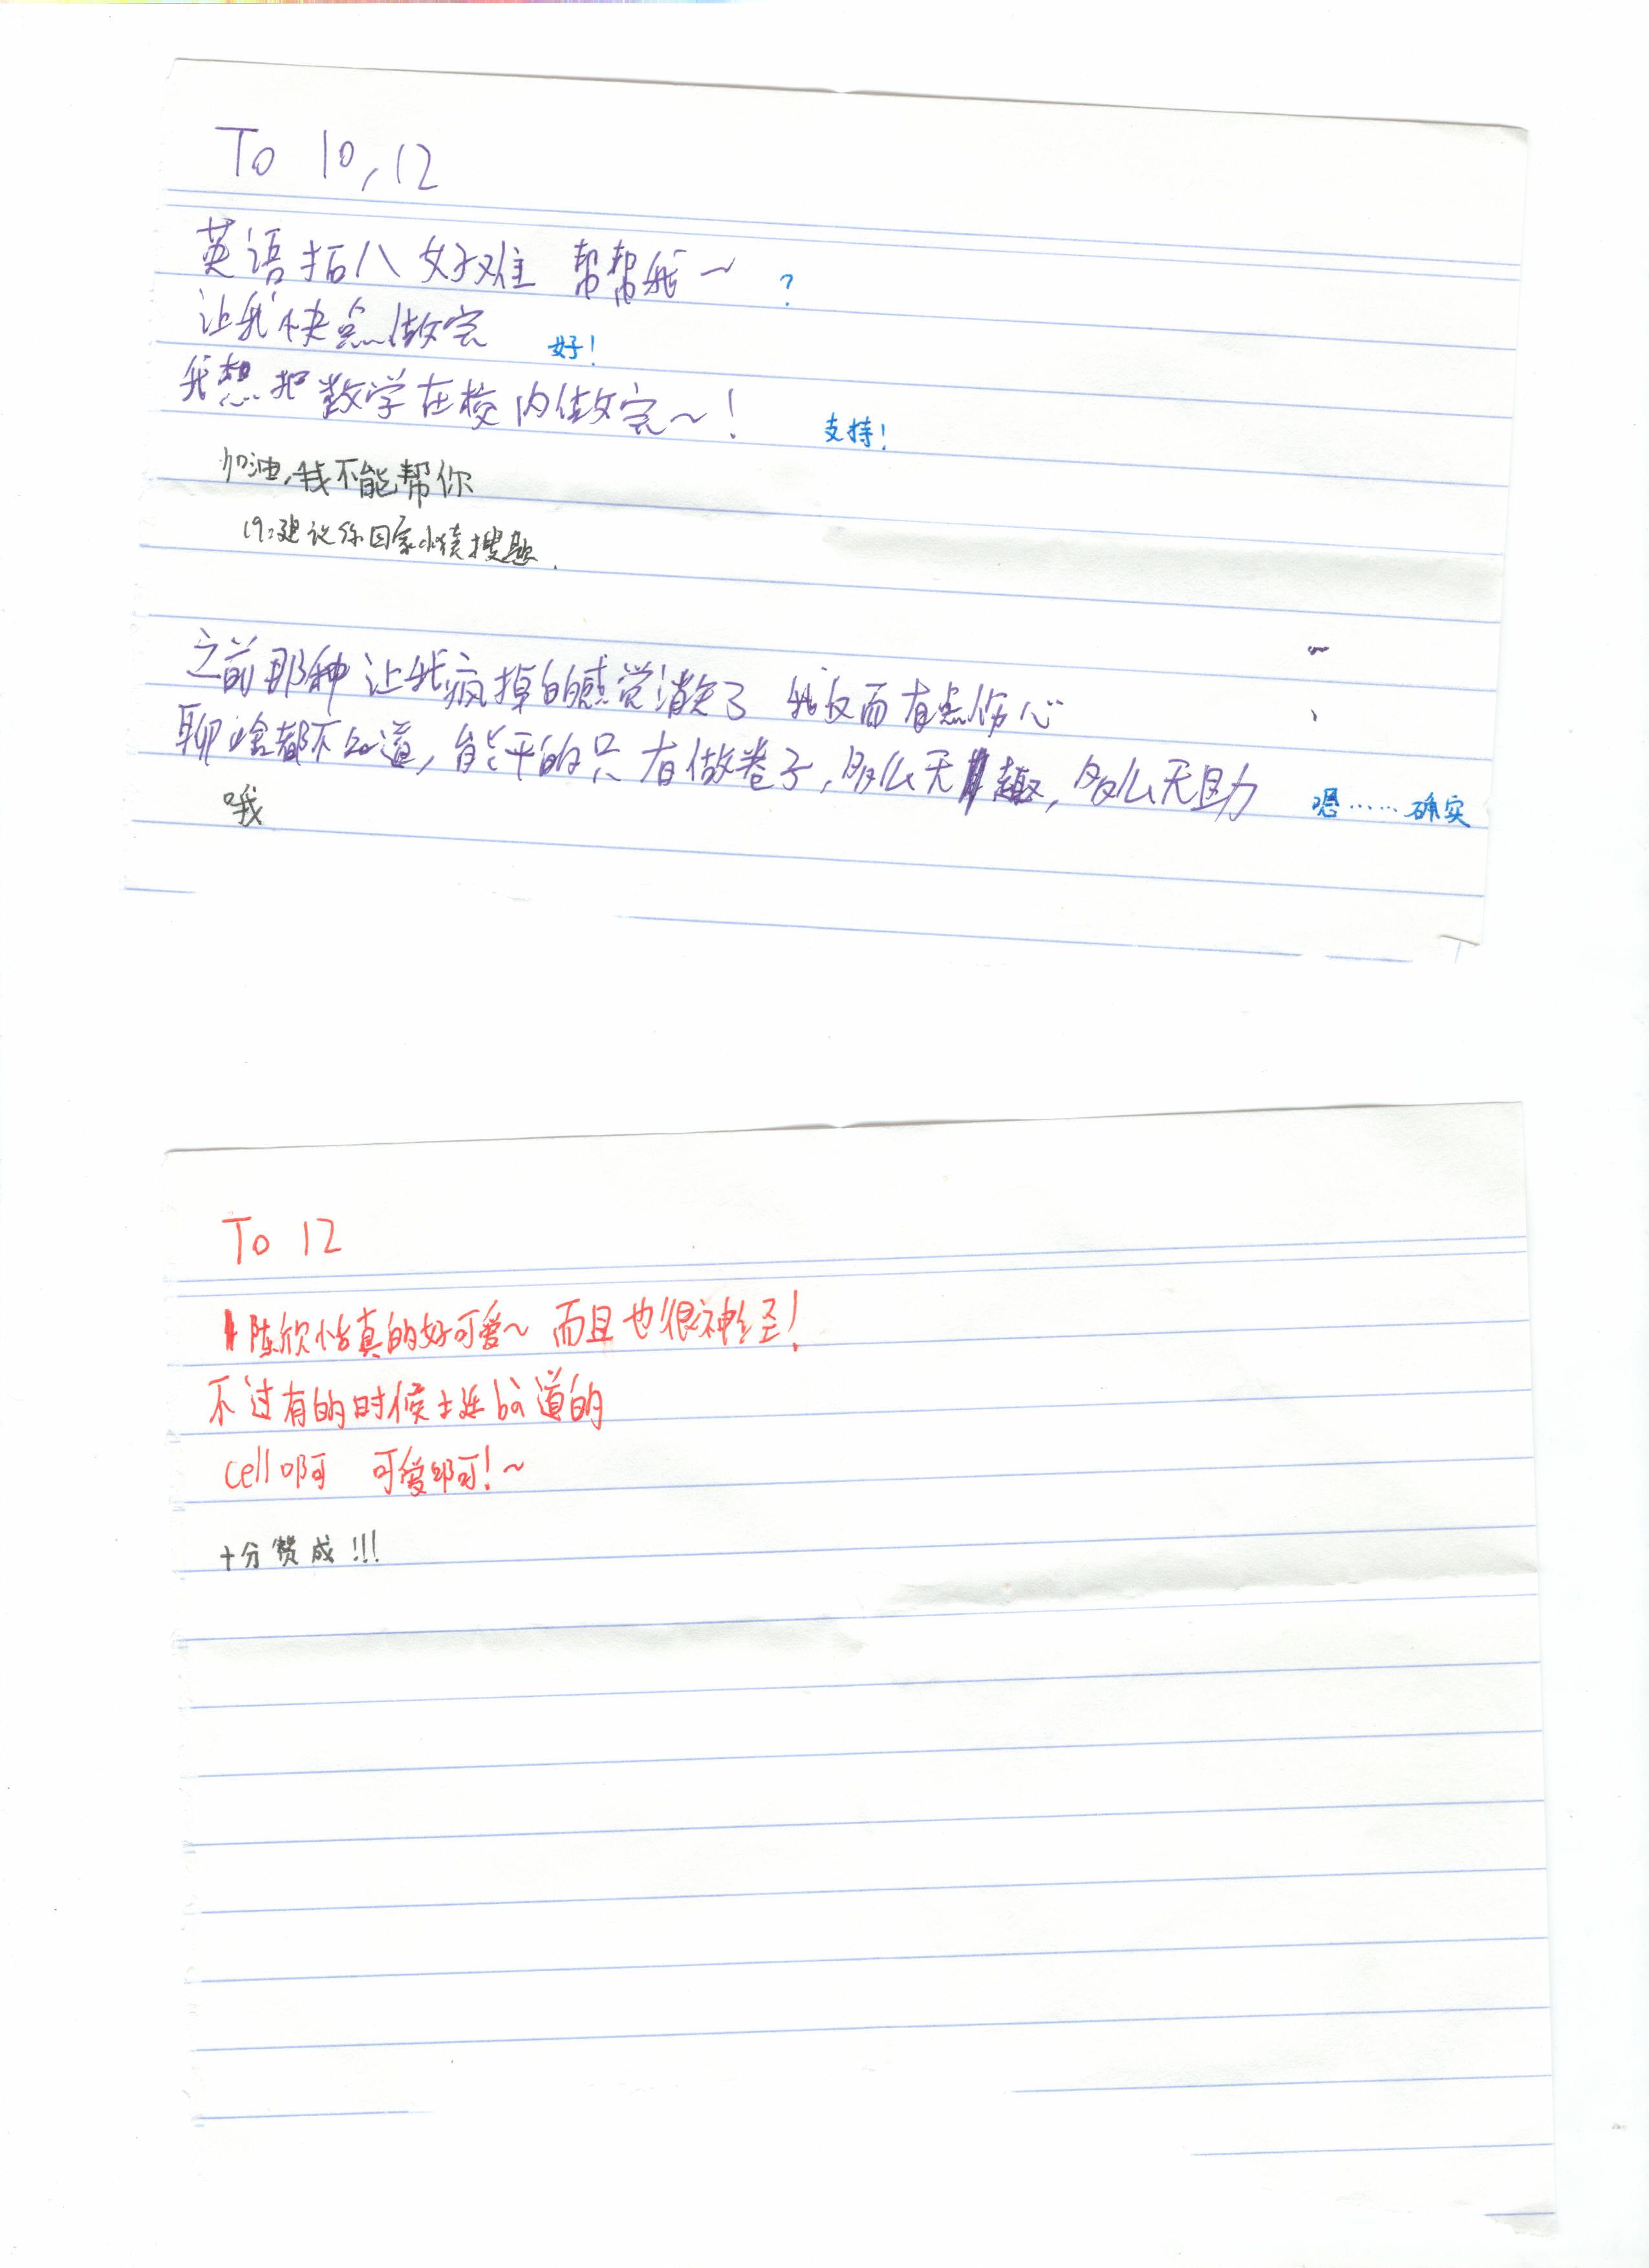 To 10,12
英语括八好难 帮帮我~ ?
让我快点做完 好!
我想把数学在校内做完~! 支持!
加油,我不能帮你
19:建议你回家小猿搜题.
之前那种让我疯掉的感觉消失了 我反而有点伤心
聊啥都不知道,能干的只有做卷子,多么无趣,多么无助 嗯……确实
哦
To 12
陈欣怡真的好可爱~ 而且也很神经!
不过有的时候挺bà道的
cell啊 可爱啊!~
十分赞成!!!